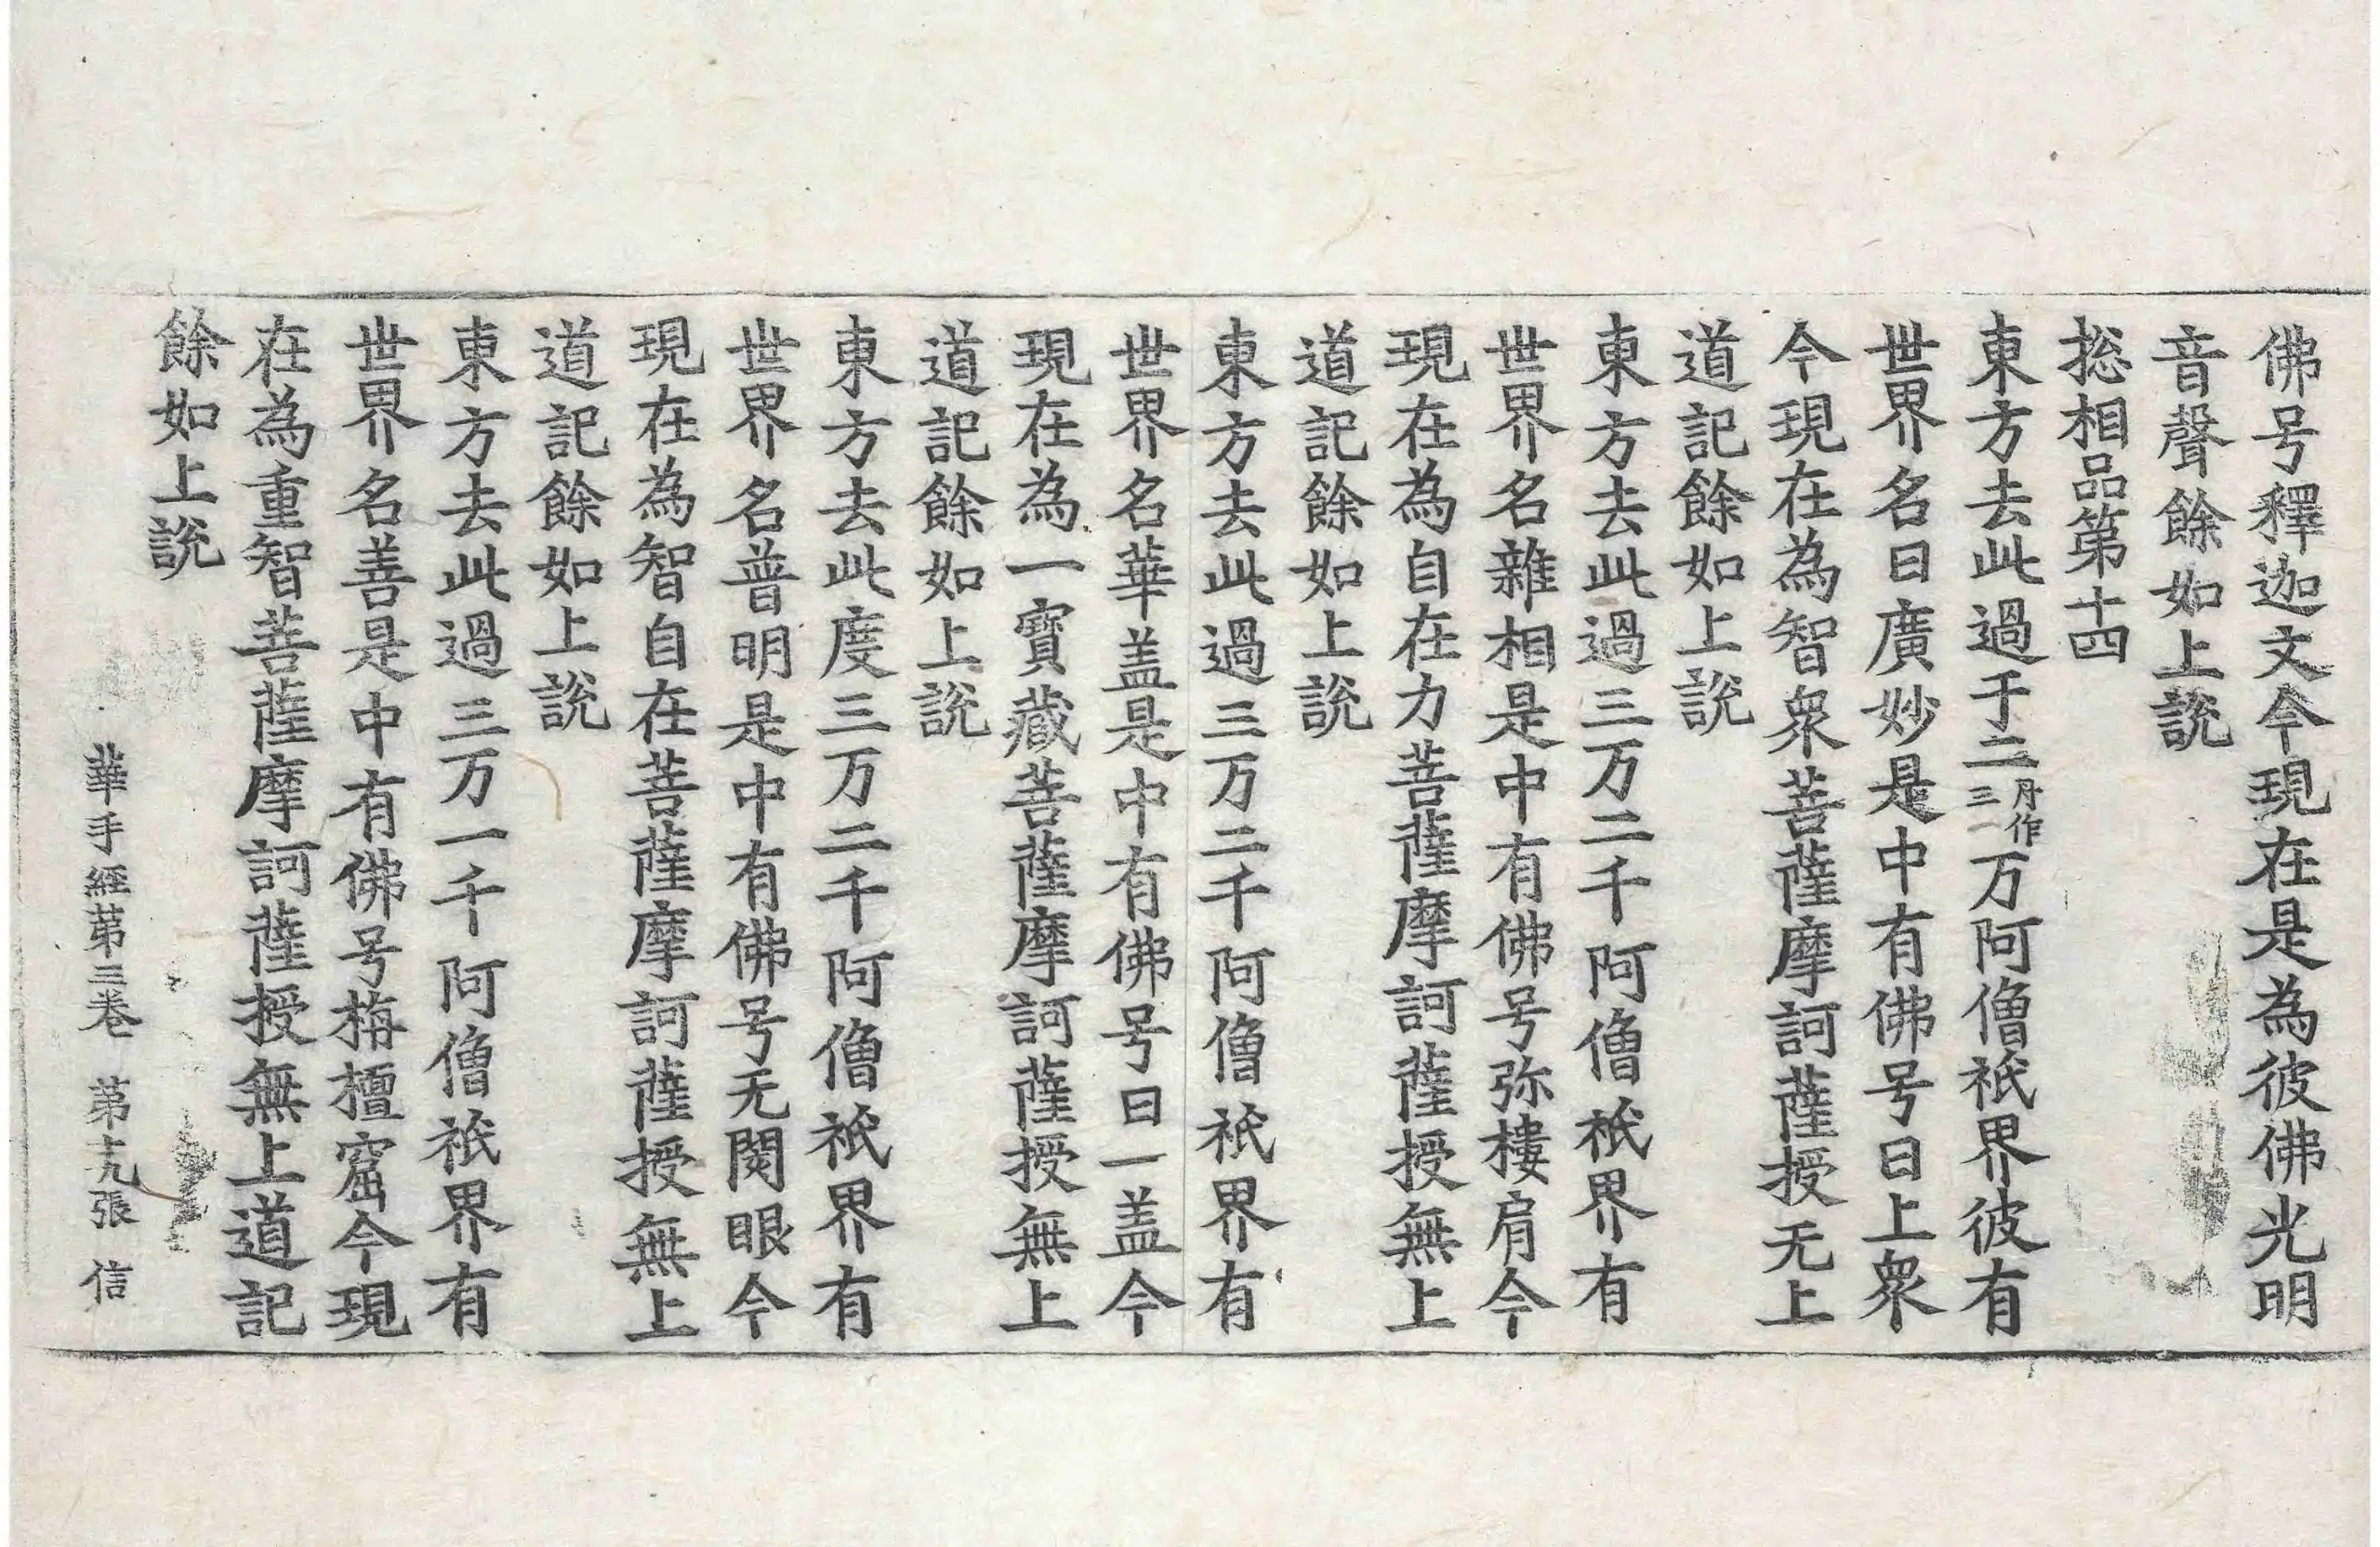 佛号釋迦文今現在是為彼佛光明
音聲餘如上說
揔相品第十四
東方去此過于二丹作三万阿僧祇界彼有
世界名曰廣妙是中有佛号曰上衆
今現在為智衆菩薩摩訶薩授无上
道記餘如上說
東方去此過三万二千阿僧祇界有
世界名雜相是中有佛号弥樓肩今
現在為自在力菩薩摩訶薩授無上
道記餘如上說
東方去此過三万二千阿僧祇界有
世界名華盖是中有佛号曰一盖今
現在為一寶藏菩薩摩訶薩授無上
道記餘如上說
東方去此度三万二千阿僧祇界有
世界名普明是中有佛号无閡眼今
現在為智自在菩薩摩訶薩授無上
道記餘如上說
東方去此過三万一千阿僧祇界有
世界名善是中有佛号栴檀窟今現
在為重智菩薩摩訶薩授無上道記
餘如上說
華手經第三卷 第十九張 信